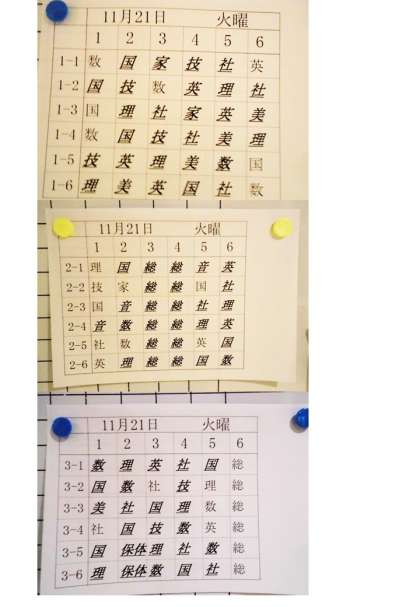 11月21日 火曜
1 2 3 4 5 6
1-1 数 国 家 技 社 英
1-2 国 技 数 英 理 社
1-3 国 理 社 家 英 美
1-4 数 国 技 社 美 理
1-5 技 英 理 美 数 国
1-6 理 美 英 国 社 数
11月21日 火曜
1 2 3 4 5 6
2-1 理 国 総 総 音 英
2-2 技 家 総 総 国 社
2-3 国 音 総 総 社 理
2-4 音 数 総 総 理 英
2-5 社 数 総 総 英 国
2-6 英 理 総 総 国 数
11月21日 火曜
1 2 3 4 5 6
3-1 数 理 英 社 国 総
3-2 国 数 社 技 理 総
3-3 美 社 国 理 数 総
3-4 社 国 技 数 英 総
3-5 国 保体 理 社 数 総
3-6 理 保体 数 国 社 総